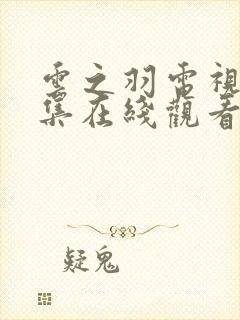 雲之羽電視
集在綫觀看
疑鬼